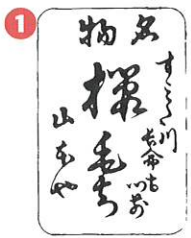 1
名物
すみだ川
長命寺
門前
櫻もち
山本や